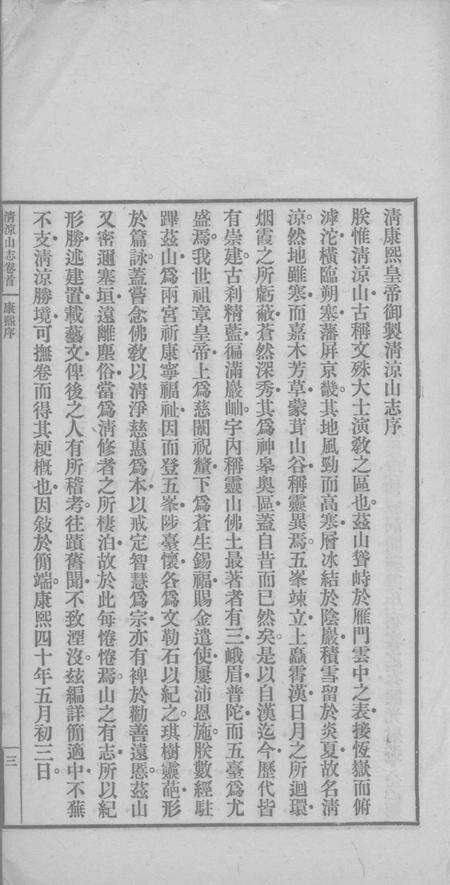 清康熙皇帝御製清涼山志序
朕惟清涼山古稱文殊大士演教之區也。茲山聳峙於雁門雲中之表接恆嶽而俯
滹沱橫臨朔塞藩屏京畿其地風勁而高寒層冰結於陰巖積雪留於炎夏故名清
涼。然地雖寒而嘉木芳草蒙茸山谷稱靈異焉。五峯竦立上矗霄漢日月之所迴環
烟霞之所虧蔽蒼然深秀其為神皋奧區蓋自昔而已然矣。是以自漢迄今歷代皆
有崇建古剎精藍徧滿巖岫宇內稱靈山佛土最著者有三峨眉普陀而五臺為尤
盛焉。我世祖章皇帝上為慈闈祝釐下為蒼生錫福賜金遣使屢沛恩施朕數經駐
蹕茲山為兩宮祈康寧福祉因而登五峯陟臺懷各為文勒石以紀之琪樹靈葩形
於篇詠蓋嘗念佛教以清淨慈惠為本以戒定智慧為宗亦有裨於勸善遠慝茲山
又密邇塞垣遠離塵俗當為清修者之所棲泊故於此每惓惓焉。山之有志所以紀
形勝述建置載藝文俾後之人有所稽考。往蹟舊聞不致湮沒。茲編詳簡適中不蕪
不支清涼勝境可撫卷而得其梗概也因敍於簡端。康熙四十年五月初三日。
清涼山志卷首
康熙序
三